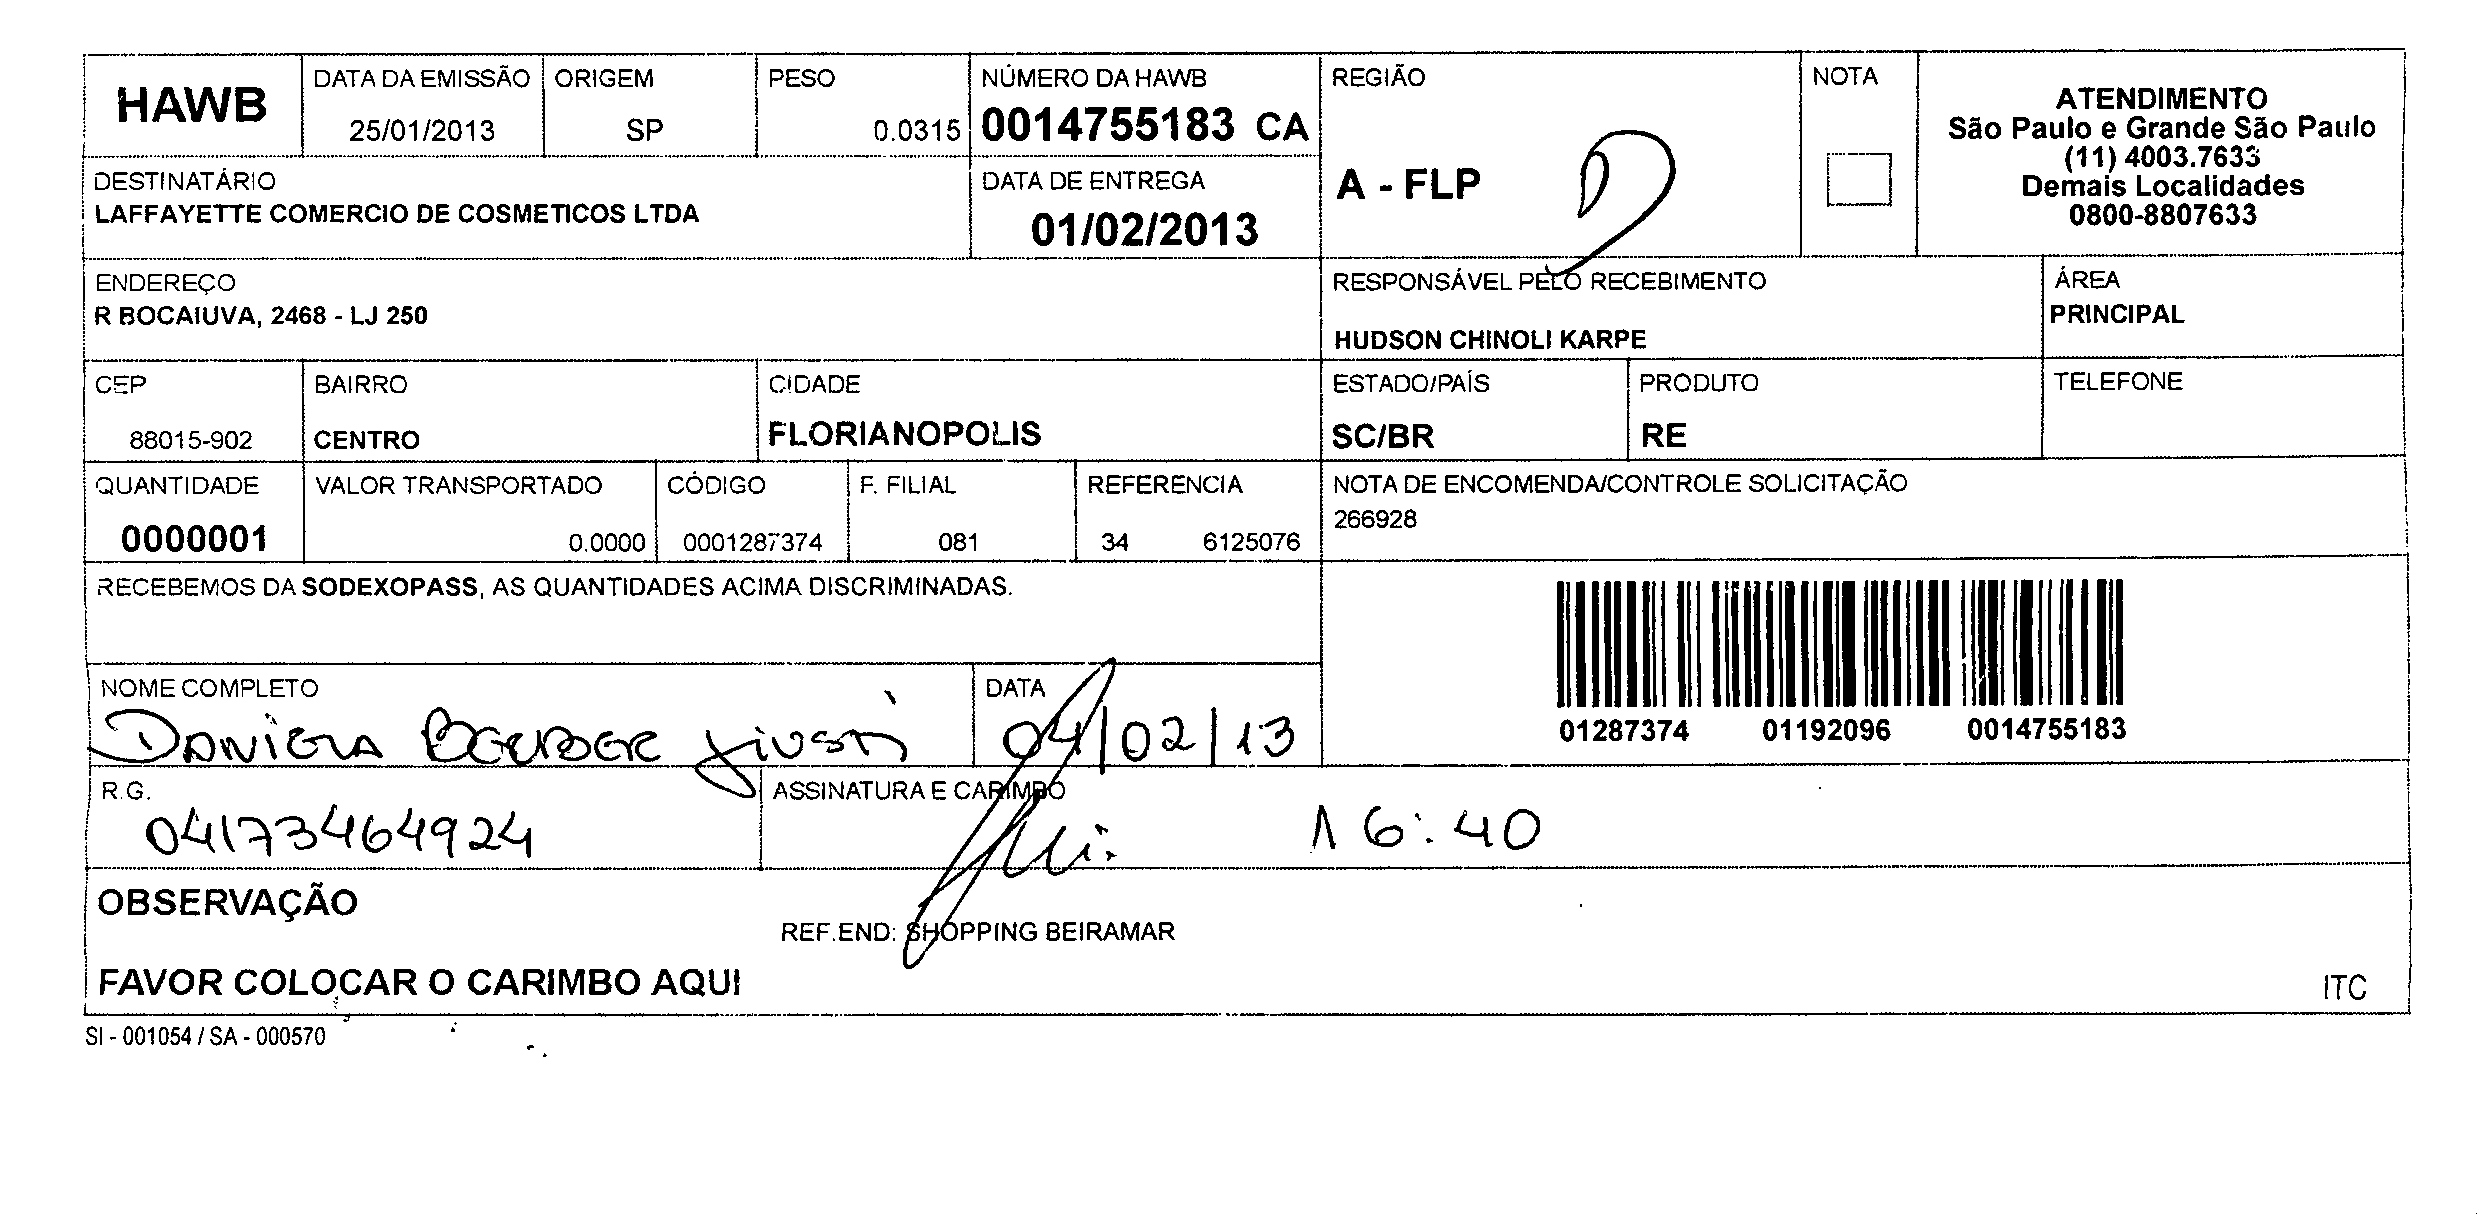 HAWB
DATA DA EMISSÃO
25/01/2013
ORIGEM
SP
PESO
0.0315
NÚMERO DA HAWB
0014755183 CA
REGIÃO
A - FLP
NOTA
ATENDIMENTO
São Paulo e Grande São Paulo
(11) 4003.7633
Demais Localidades
0800-8807633
DESTINATÁRIO
LAFFAYETTE COMERCIO DE COSMETICOS LTDA
DATA DE ENTREGA
01/02/2013
ENDEREÇO
R BOCAIUVA, 2468 - LJ 250
RESPONSÁVEL PELO RECEBIMENTO
HUDSON CHINOLI KARPE
ÁREA
PRINCIPAL
CEP
88015-902
BAIRRO
CENTRO
CIDADE
FLORIANOPOLIS
ESTADO/PAÍS
SC/BR
PRODUTO
RE
TELEFONE
QUANTIDADE
0000001
VALOR TRANSPORTADO
0.0000
CÓDIGO
0001287374
F. FILIAL
081
REFERENCIA
34 6125076
NOTA DE ENCOMENDA/CONTROLE SOLICITAÇÃO
266928
RECEBEMOS DA SODEXOPASS, AS QUANTIDADES ACIMA DISCRIMINADAS.
01287374 01192096 0014755183
NOME COMPLETO
DANIELA
DATA
04/02/13
R.G.
04173464924
ASSINATURA E CARIMBO
16:40
OBSERVAÇÃO
REF.END: SHOPPING BEIRAMAR
FAVOR COLOCAR O CARIMBO AQUI
ITC
SI - 001054 / SA - 000570